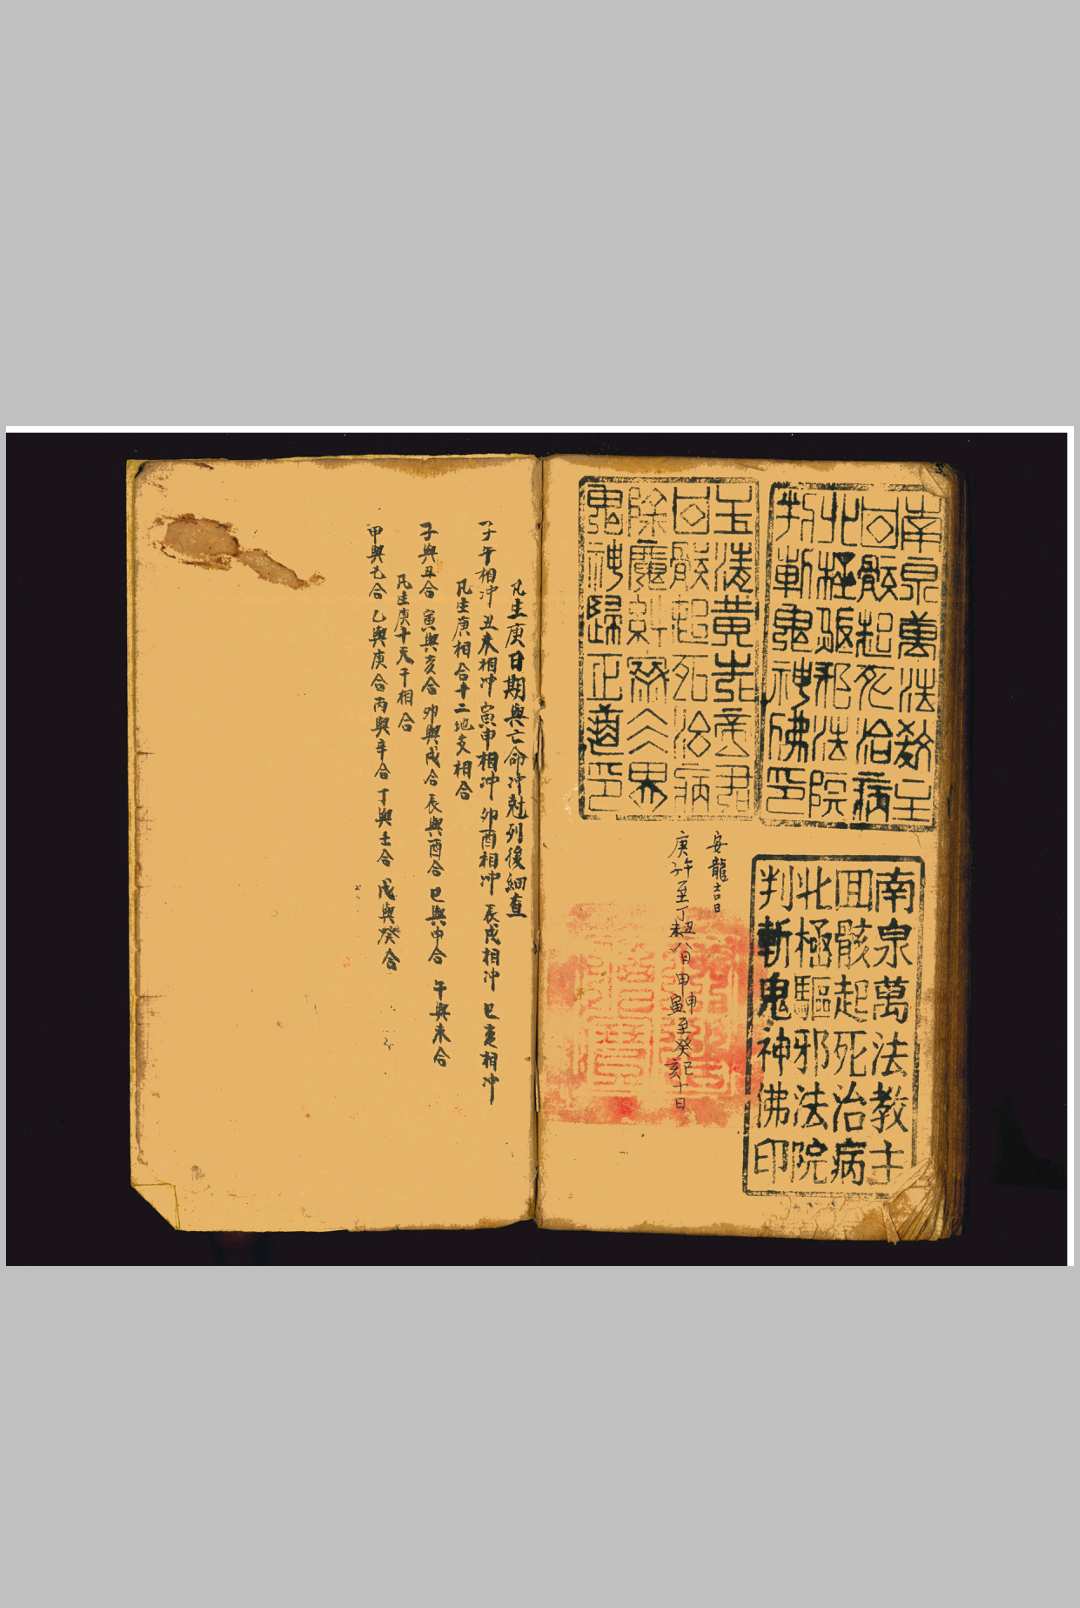 南泉萬法教主
回骸起死治病
北極驅邪法院
判斬鬼神佛印
玉清黄老帝君
回骸起死治病
除魔糾察三界
鬼神歸正道印
南泉萬法教主
回骸起死治病
北極驅邪法院
判斬鬼神佛印
安龍吉日
庚子午至丁丑未八日 甲申寅至癸巳亥十日
凡生庚日期與亡命冲尅列後細查
子午相冲 丑未相冲 寅申相冲 卯酉相冲 辰戌相冲 巳亥相冲
凡生庚相合十二地支相合
子與丑合 寅與亥合 卯與戌合 辰與酉合 巳與申合 午與未合
凡生庚十天干相合
甲與己合 乙與庚合 丙與辛合 丁與壬合 戊與癸合